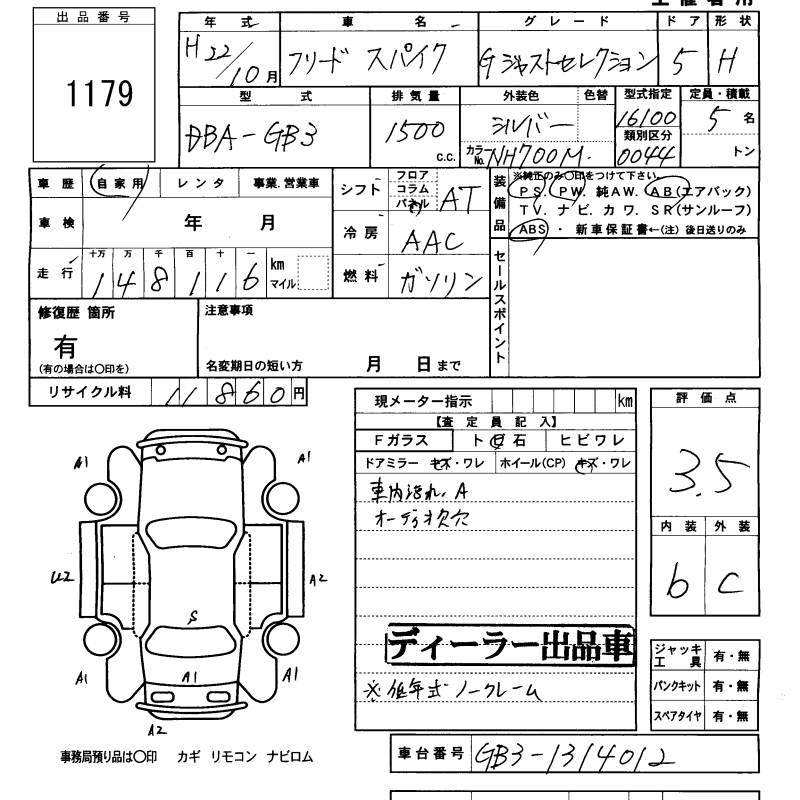 主催者用
出品番号
1179
年式 車名 グレード ドア 形状
H22/10月 フリード スパイク Gジャストセレクション 5 H
型式 排気量 外装色 色替 型式指定 定員・積載
DBA-GB3 1500 c.c. シルバー 16100 5名
カラーNo. NH700M. 類別区分 0044 トン
車歴 自家用 レンタ 事業.営業車
車検 年 月
走行 十万 万 千 百 十 一
148116 km マイル
シフト フロア コラム パネル AT
冷房 AAC
燃料 ガソリン
装備品 ※純正のみ〇印をつけて下さい。
PS. PW. 純AW. AB(エアバック)
TV. ナビ. カワ. SR(サンルーフ)
ABS ・ 新車保証書←(注) 後日送りのみ
セールスポイント
修復歴 箇所
有
(有の場合は〇印を)
注意事項
名変期日の短い方 月 日まで
リサイクル料 11860円
現メーター指示 km
【査定員記入】
Fガラス ト石 ヒビワレ
ドアミラー キズ・ワレ ホイール(CP) キズ・ワレ
車内汚れ.A
オーディオ欠穴
ディーラー出品車
※低年式ノークレーム
評価点
3.5
内装 外装
b C
ジャッキ工具 有・無
パンクキット 有・無
スペアタイヤ 有・無
A1 A1
U2 A2
S
A1 A1 A1
A2
事務局預り品は〇印 カギ リモコン ナビロム
車台番号 GB3-1314012